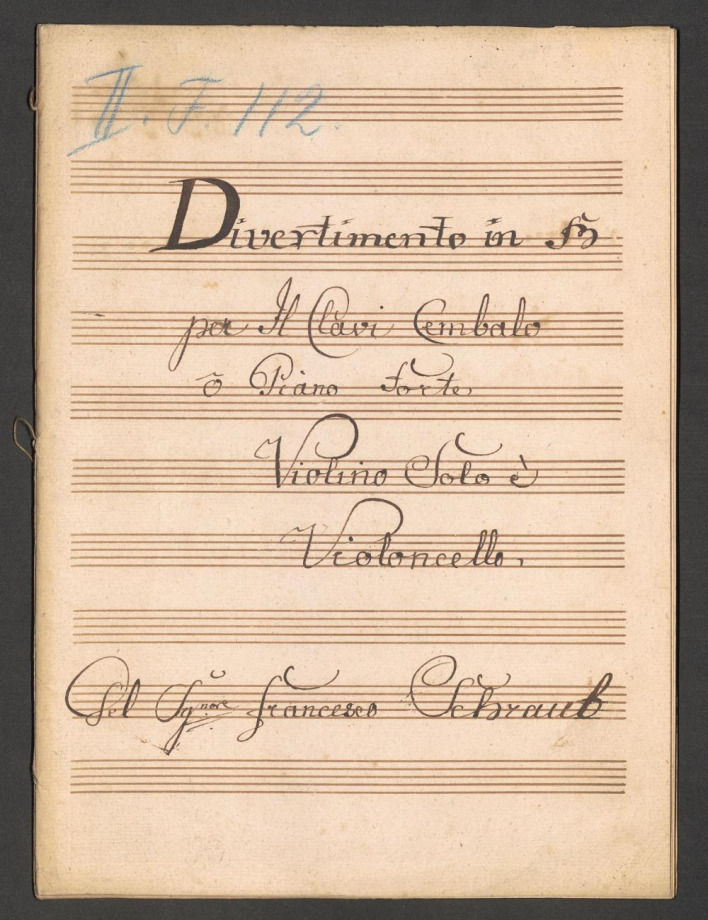 II. F. 112.
Divertimento in
per Il Clavi Cembalo
ô Piano forte
Violino Solo è
Violoncello,
Del Sig:nore Francesco Schraub